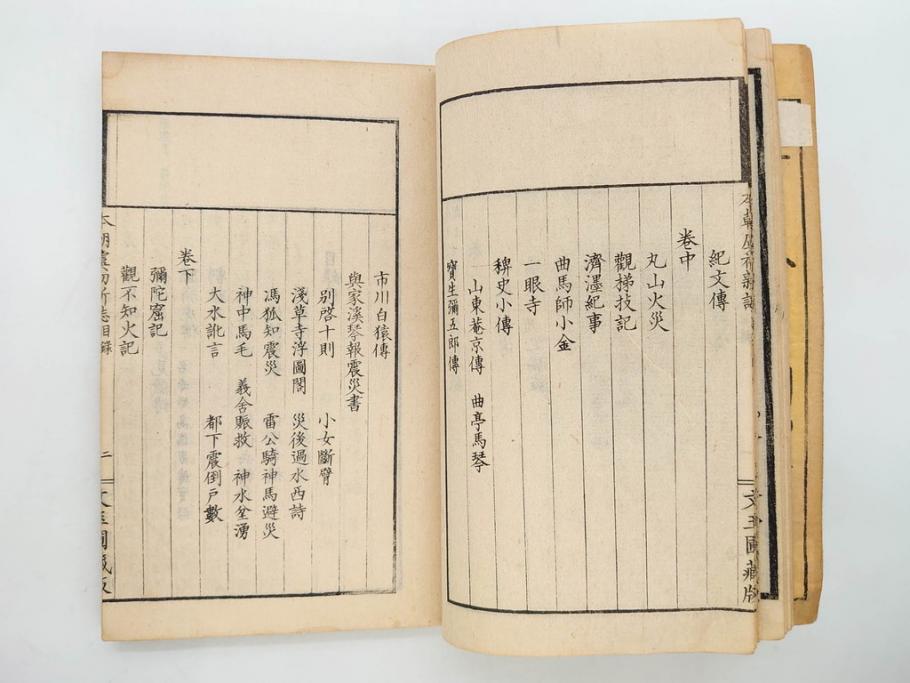 文玉圃藏版
紀文傳
卷中
丸山火災
觀梯技記
濟墨紀事
曲馬師小金
一眼寺
稗史小傳
山東菴京傳 曲亭馬琴
寶生彌五郎傳
市川白猿傳
與家溪琴報震災書
別啓十則 小女斷臂
淺草寺浮圖閣 災後過水西詩
馮狐知震災 雷公騎神馬避災
神中馬毛 義舍賑救 神水坌湧
大水訛言 都下震倒戶數
卷下
彌陀窟記
觀不知火記
本朝虞初新志目錄 二 文玉圃藏版